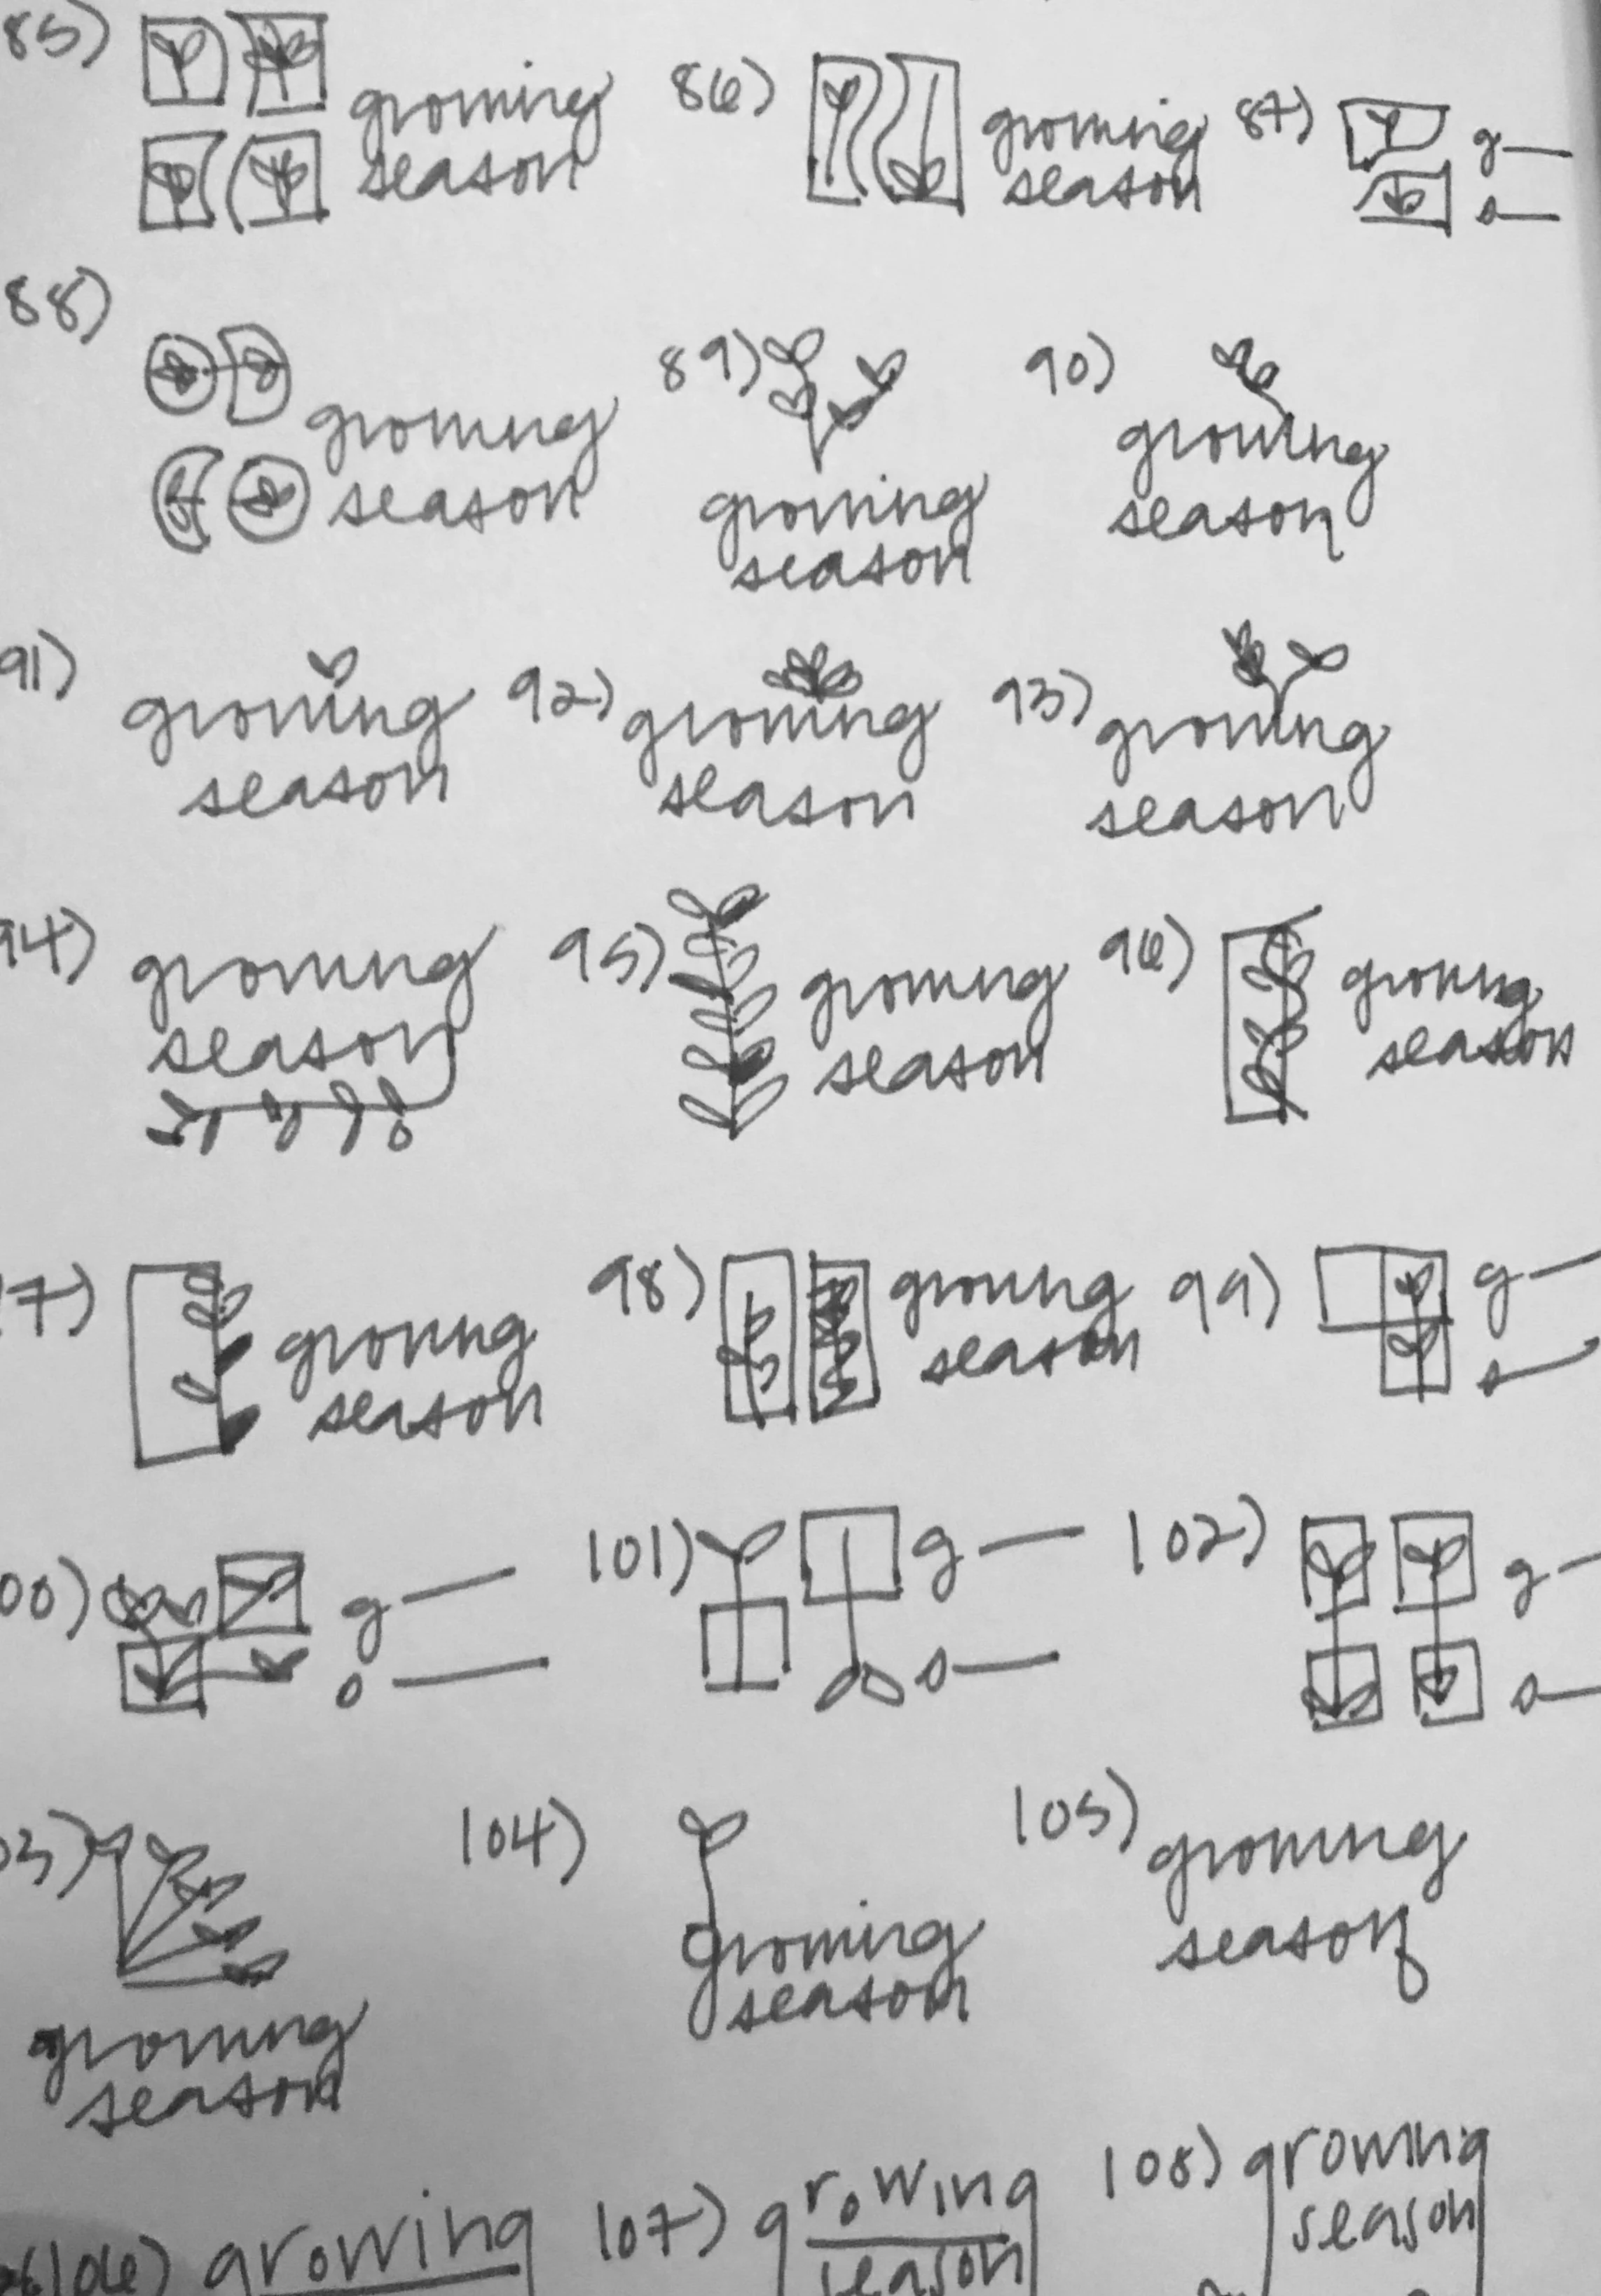 85) growing
season
86) growing
season
87) g
s
88) growing
season
89) growing
season
90) growing
season
91) growing
season
92) growing
season
93) growing
season
94) growing
season
95) growing
season
96) growing
season
97) growing
season
98) growing
season
99) g
s
00) g
s
101) g
s
102) g
s
03) growing
season
104) growing
season
105) growing
season
106) growing
107) growing
season
108) growing
season